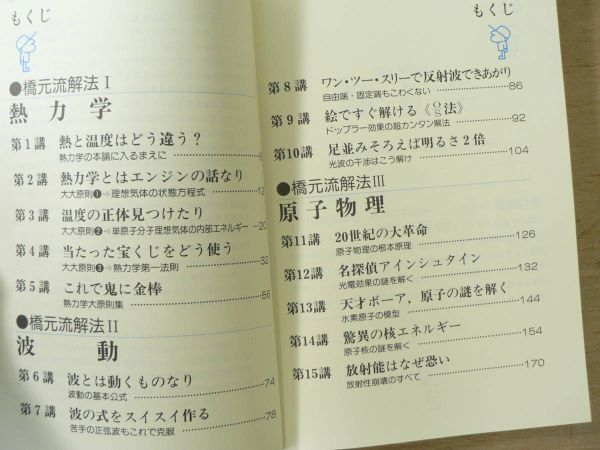 もくじ
●橋元流解法Ⅰ
熱力学
第1講 熱と温度はどう違う？
熱力学の本論に入るまえに
第2講 熱力学とはエンジンの話なり
大大原則❶⇨理想気体の状態方程式 12
第3講 温度の正体見つけたり
大大原則❷⇨単原子分子理想気体の内部エネルギー 20
第4講 当たった宝くじをどう使う
大大原則❸⇨熱力学第一法則 32
第5講 これで鬼に金棒
熱力学大原則集 56
●橋元流解法Ⅱ
波動
第6講 波とは動くものなり
波動の基本公式 74
第7講 波の式をスイスイ作る
苦手の正弦波もこれで克服 78
もくじ
第8講 ワン・ツー・スリーで反射波できあがり
自由端・固定端もこわくない 86
第9講 絵ですぐ解ける《OS法》
ドップラー効果の超カンタン解法 92
第10講 足並みそろえば明るさ2倍
光波の干渉はこう解け 104
●橋元流解法Ⅲ
原子物理
第11講 20世紀の大革命
原子物理の根本原理 126
第12講 名探偵アインシュタイン
光電効果の謎を解く 132
第13講 天才ボーア，原子の謎を解く
水素原子の模型 144
第14講 驚異の核エネルギー
原子核の謎を解く 154
第15講 放射能はなぜ恐い
放射性崩壊のすべて 170